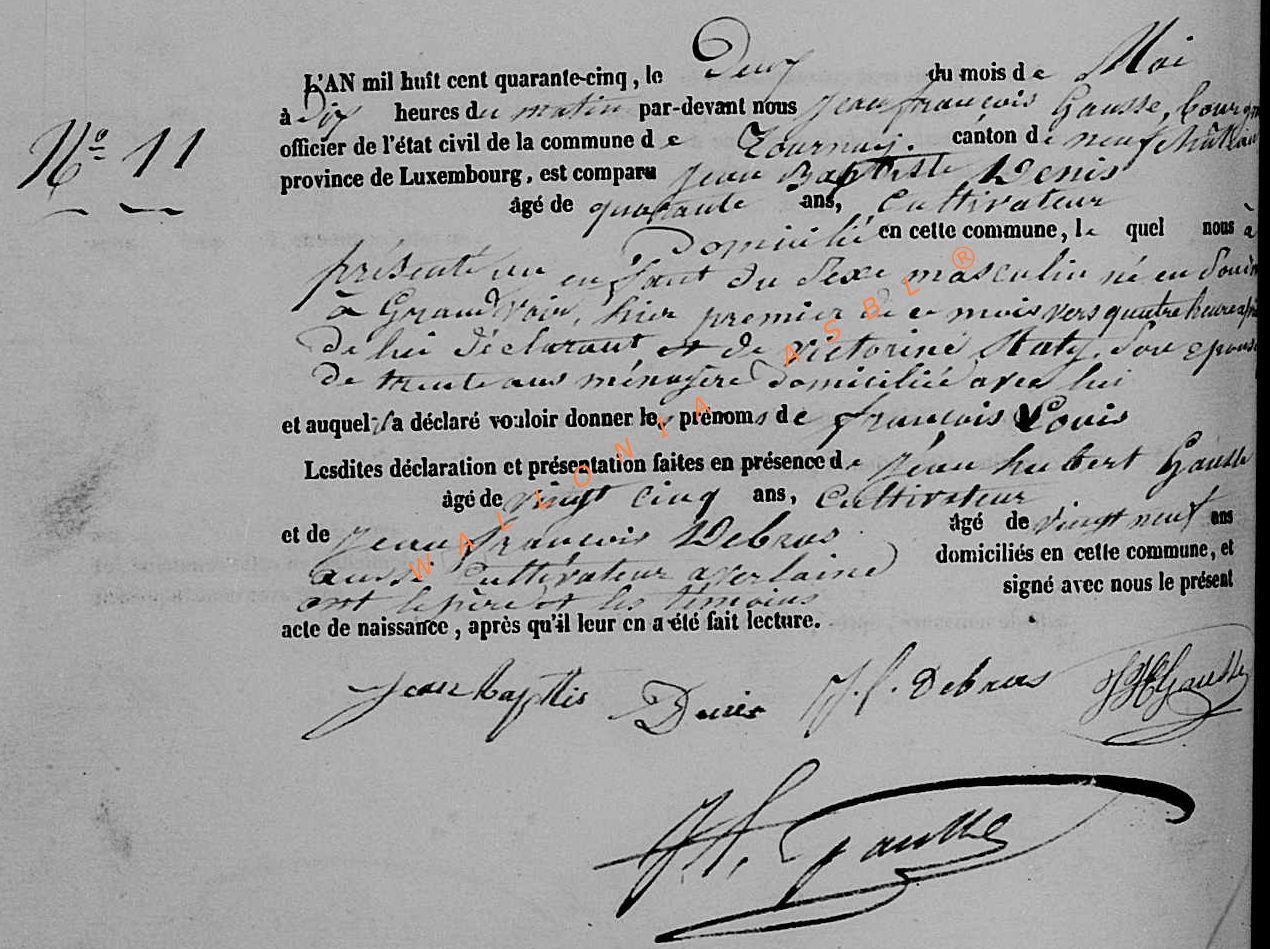 N° 11
L'AN mil huit cent quarante-cinq, le Deux du mois de Mai
à Dix heures du matin par-devant nous Jean françois Gausse, bourgm
officier de l'état civil de la commune de Tournay. canton de neufchâteau
province de Luxembourg, est comparu Jean Baptiste Denis
âgé de quarante ans, Cultivateur
Domicilié en cette commune, le quel nous à
présenté un enfant du Sexe masculin né en
à Grandvoir, hier premier de ce mois vers quatre heures
de lui déclarant et de victorine Maty, Son epouse
de trente ans ménagère domiciliée avec lui
et auquel il a déclaré vouloir donner les prénoms de françois Louis
Lesdites déclaration et présentation faites en présence de jean hubert Gausse
âgé de vingt cinq ans, Cultivateur
et de Jean françois Debras âgé de vingt neuf ans
aussi Cultivateur a verlaine domiciliés en cette commune, et
ont le père et les témoins signé avec nous le présent
acte de naissance, après qu'il leur en a été fait lecture.
Jean Baptis Denis J. f. Debras JHGausse
J. f. Gausse
WALLONIA ASBL ®